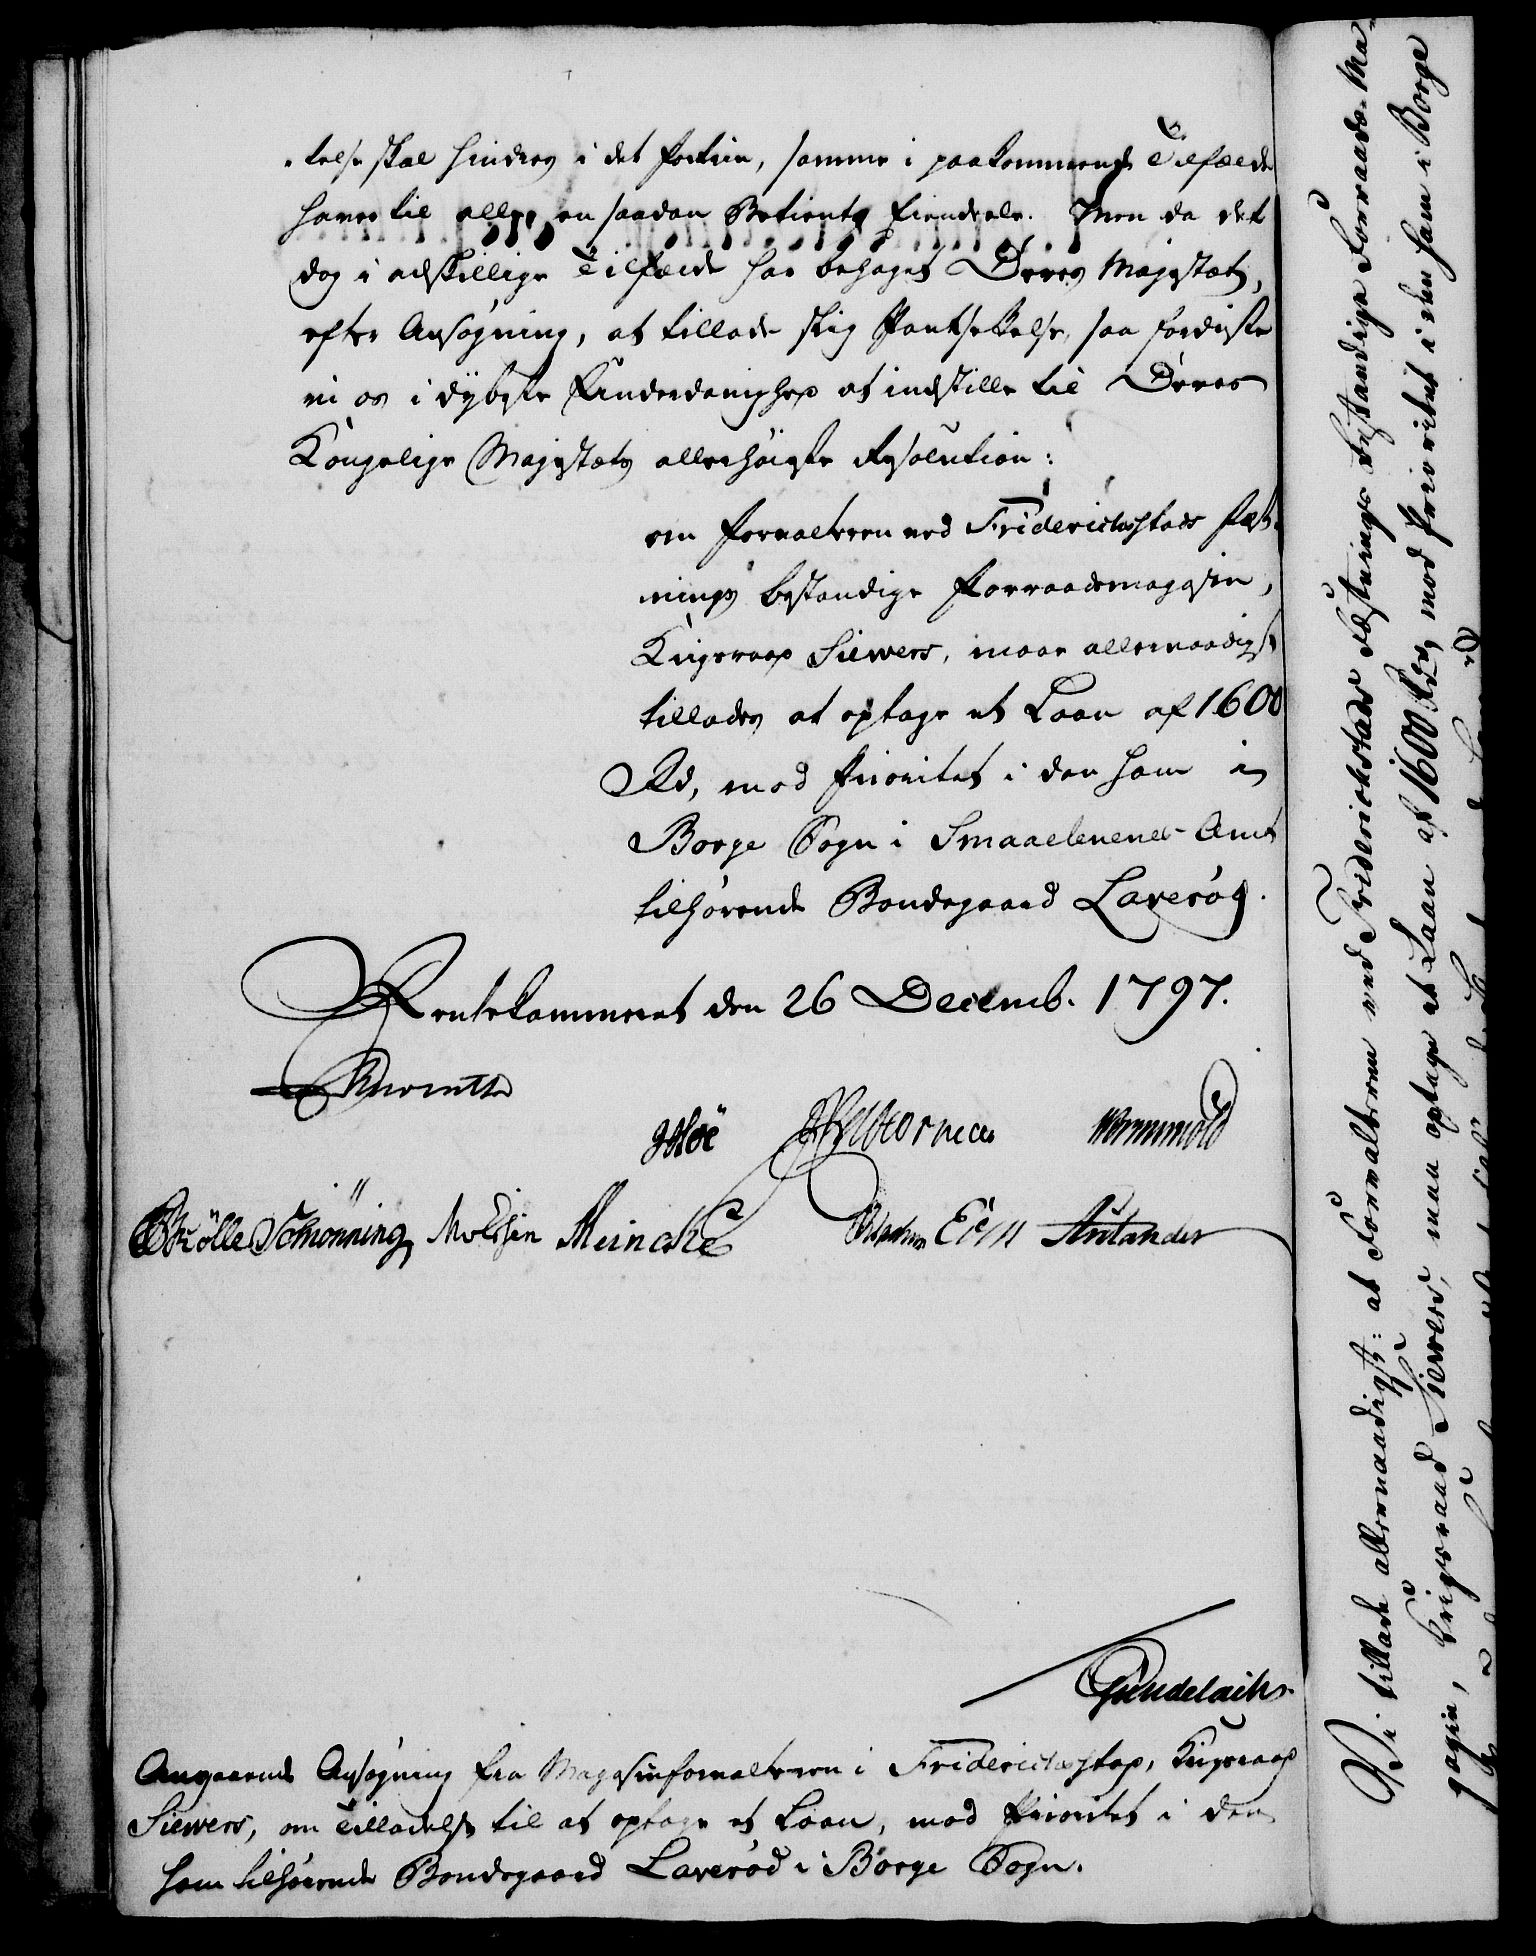 -telse skal hindres i det fortrin, samme i paakommende Tilfælde
haver til alle en saadan Betients Eiendeele. Men da det
dog i adskillige Tilfælde har behaget Deres Majestæt,
efter Ansøgning, at tillade slig Pantsættelse, saa fordriste
vi os i dybeste Underdanighed at indstille til Deres
Kongelige Majestæts allerhøieste Resolution:
om Forvalteren ved Friderichsstads Fæst-
nings bestandige Forraadsmagasin,
Krigsraad Siewers, maae allernaadigst
tillades at optage et Laan af 1600
Rd, mod Prioritet i den ham i
Borge Sogn i Smaaelenenes Amt
tilhørende Bondegaard Laverød.
Rentekammeret den 26 Decemb. 1797.
Reventlow
Hoë Wormskiold
Schønning, Meincke Eisen Rutander
Gundelach
Angaaende Ansøgning fra Magasinforvalteren i Friderichsstad, Krigsraad
Siewers, om Tilladelse til at optage et Laan, mod Prioritet i den
ham tilhørende Bondegaard Laverød i Borge Sogn.
Vi tillade allernaadigst: at Forvalteren ved Friderichstads Fæstnings bestandige Forraads-Ma-
gasin, Krigsraad Siewers, maa optage et Laan af 1600 Rdr, mod Prioritet i den ham i Borge